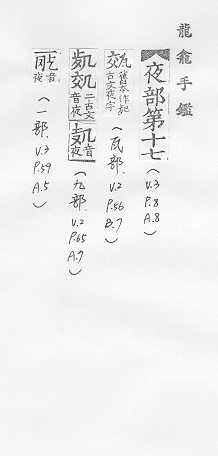 龍龕手鑑
夜部第十七
(v.3 P.8 A.8)
舊本作記
古文夜字
(瓦部. v.2 P.56 B.7)
二古文
音夜
音夜
(九部. v.2 P.65 A.7)
音夜
(一部. v.3 P.59 A.5)